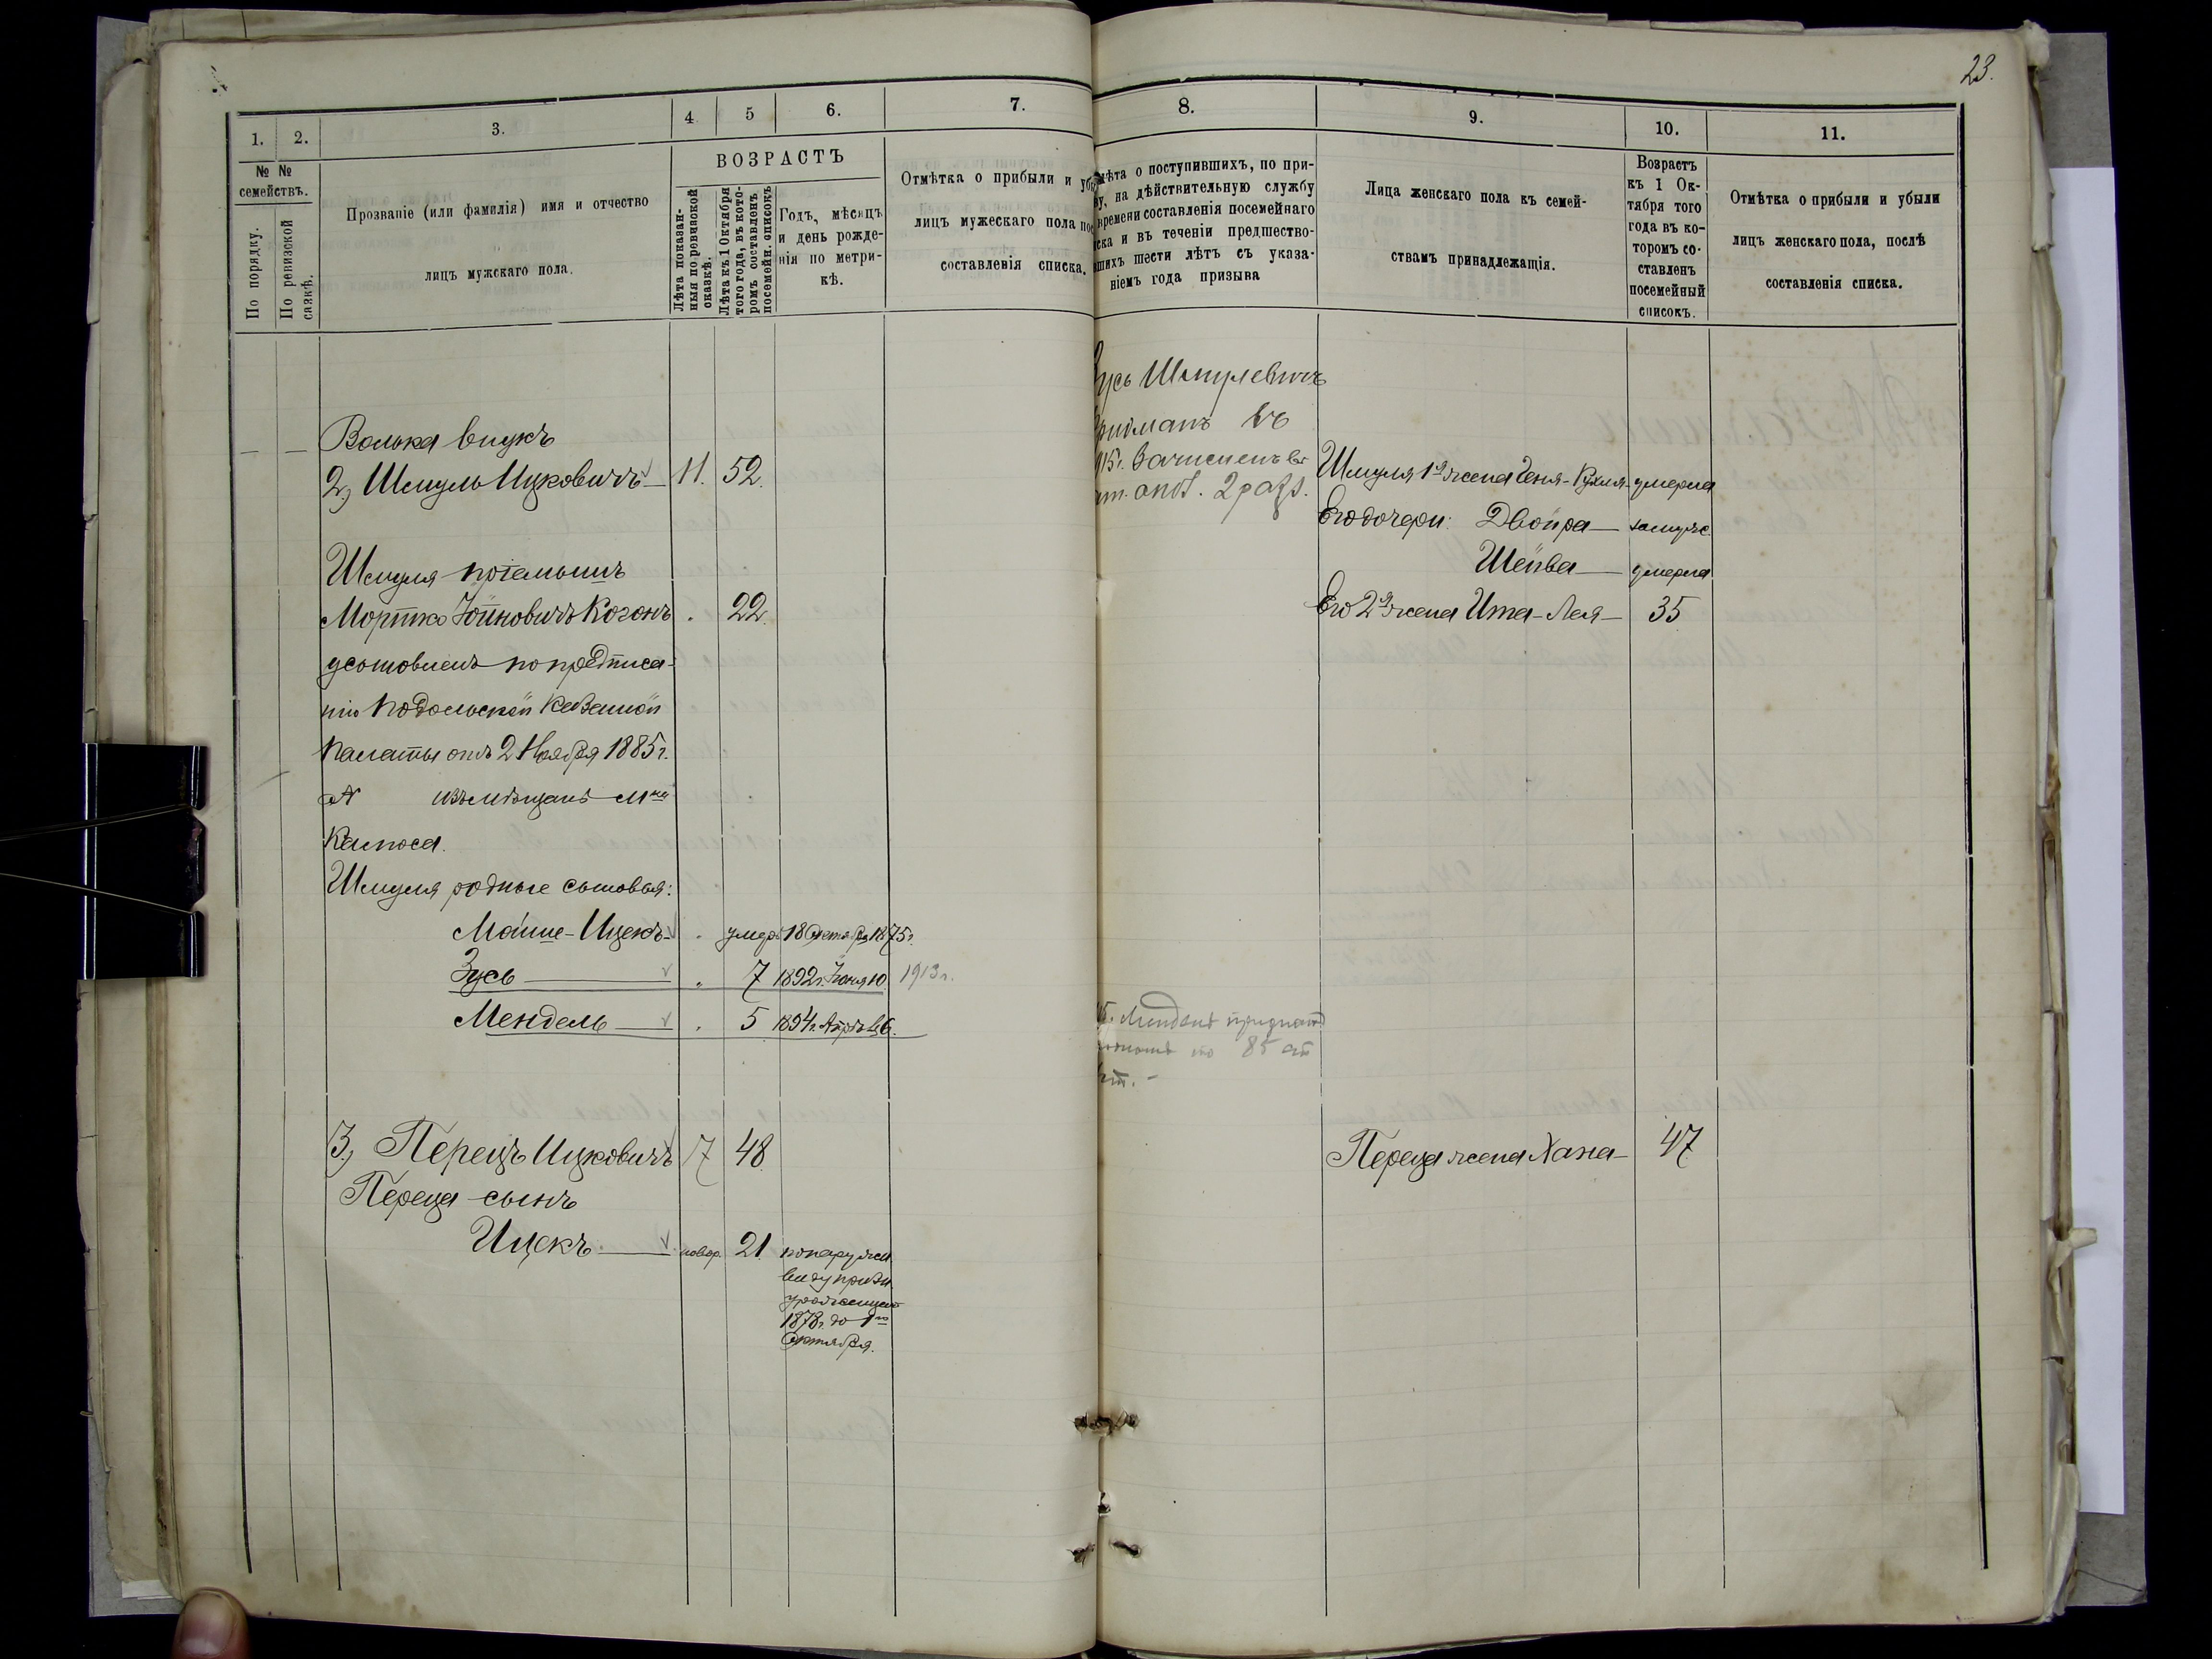 23.
1.
2.
3.
4
5
6.
7.
8.
9.
10.
11.
№ №
семействъ.
По порядку.
По ревизской
сказкѣ.
Прозваніе (или фамилія) имя и отчество
лицъ мужскаго пола.
ВОЗРАСТЪ
Лѣта показан-
ныя по ревизской
сказкѣ.
Лѣта къ 1 Октября
того года, въ кото-
ромъ составленъ
посемейн. списокъ
Годъ, мѣсяцъ
и день рожде-
нія по метри-
кѣ.
Отмѣтка о прибыли и убы
лицъ мужескаго пола пос
составленія списка.
мѣта о поступившихъ, по при-
ву, на дѣйствительную службу
времени составленія посемейнаго
иска и въ теченіи предшество-
вшихъ шести лѣтъ съ указа-
ніемъ года призыва
Лица женскаго пола къ семей-
ствамъ принадлежащія.
Возрастъ
къ 1 Ок-
тября того
года въ ко-
торомъ со-
ставленъ
посемейный
списокъ.
Отмѣтка о прибыли и убыли
лицъ женскаго пола, послѣ
составленія списка.
Волька внукъ
2, Шмуль Ицковичъ — 11. 52.
Шмуля пріемышъ
Мортко Іойновичъ Когонъ . 22.
усыновленъ по предписа-
нію Подольской Казенной
Палаты отъ 2 Ноября 1885 г.
№ изъ мѣщанъ М-ка
Калюса.
Шмуля родные сыновья:
Мойше-Ицекъ — умеръ 18 Октября 1875 г.
Зусь — „ 7 1892 г. Іюня 10. 1913 г.
Мендель — . 5 1894 г. Апрѣля 6.
3, Перецъ Ицковичъ 7 48.
Переца сынъ
Ицекъ — новор. 21 по наружн.
виду призн.
урожденцемъ
1878 г. до 1го
Октября.
Зусь Шмулевичъ
въ
915 г. зачисленъ въ
рат. опол. 2 разр.
Мендель признанъ
по 85 ст
Шмуля 1я жена Геня-Рухля — умерла
Его дочери: Двойра — замуж.
Шейва — умерла
Его 2я жена Ита-Лея — 35
Переца жена Хана — 47